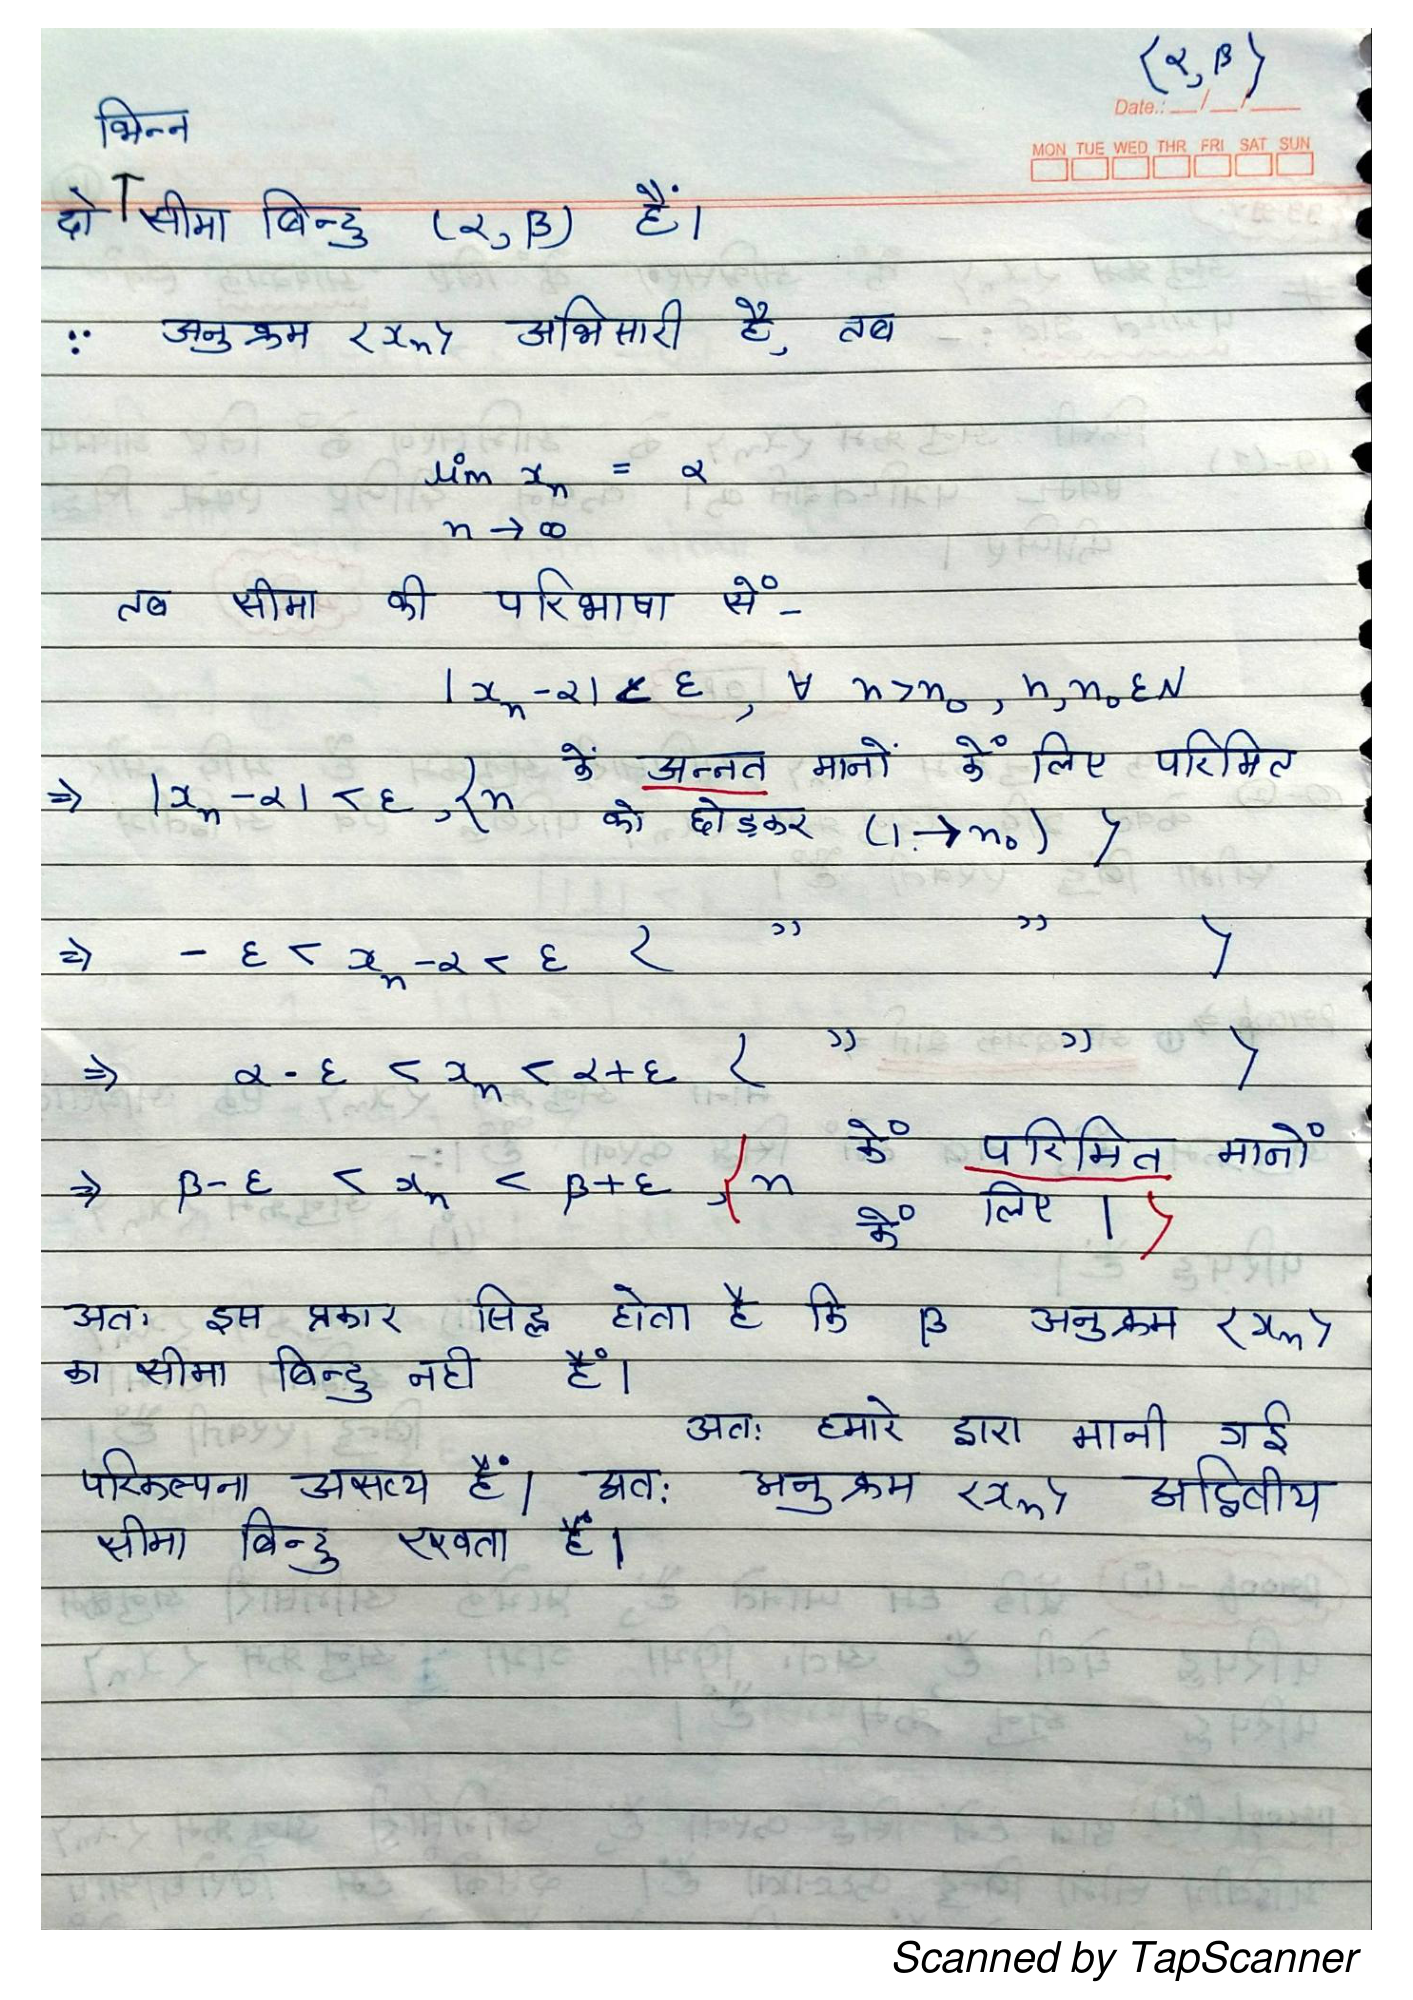 ⟨α, β⟩
Date.: __/__/____
MON TUE WED THR FRI SAT SUN
भिन्न
दो ↑ सीमा बिन्दु (α, β) हैं।
∵ अनुक्रम <xₙ> अभिसारी है, तब
lim xₙ = α
n → ∞
तब सीमा की परिभाषा सें–
|xₙ - α| < ε, ∀ n > n₀, n, n₀ ε N
⇒ |xₙ - α| < ε, {n कें अन्नत मानों कें लिए परिमित
को छोड़कर (1 → n₀) }
⇒ - ε < xₙ - α < ε { " " }
⇒ α - ε < xₙ < α + ε { " " }
⇒ β - ε < xₙ < β + ε, {n कें परिमित मानों
कें लिए | }
अतः इस प्रकार सिद्ध होता है कि β अनुक्रम <xₙ>
का सीमा बिन्दु नही हैं।
अतः हमारे द्वारा मानी गई
परिकल्पना असत्य हैं। अतः अनुक्रम <xₙ> अद्वितीय
सीमा बिन्दु रखता हैं।
Scanned by TapScanner